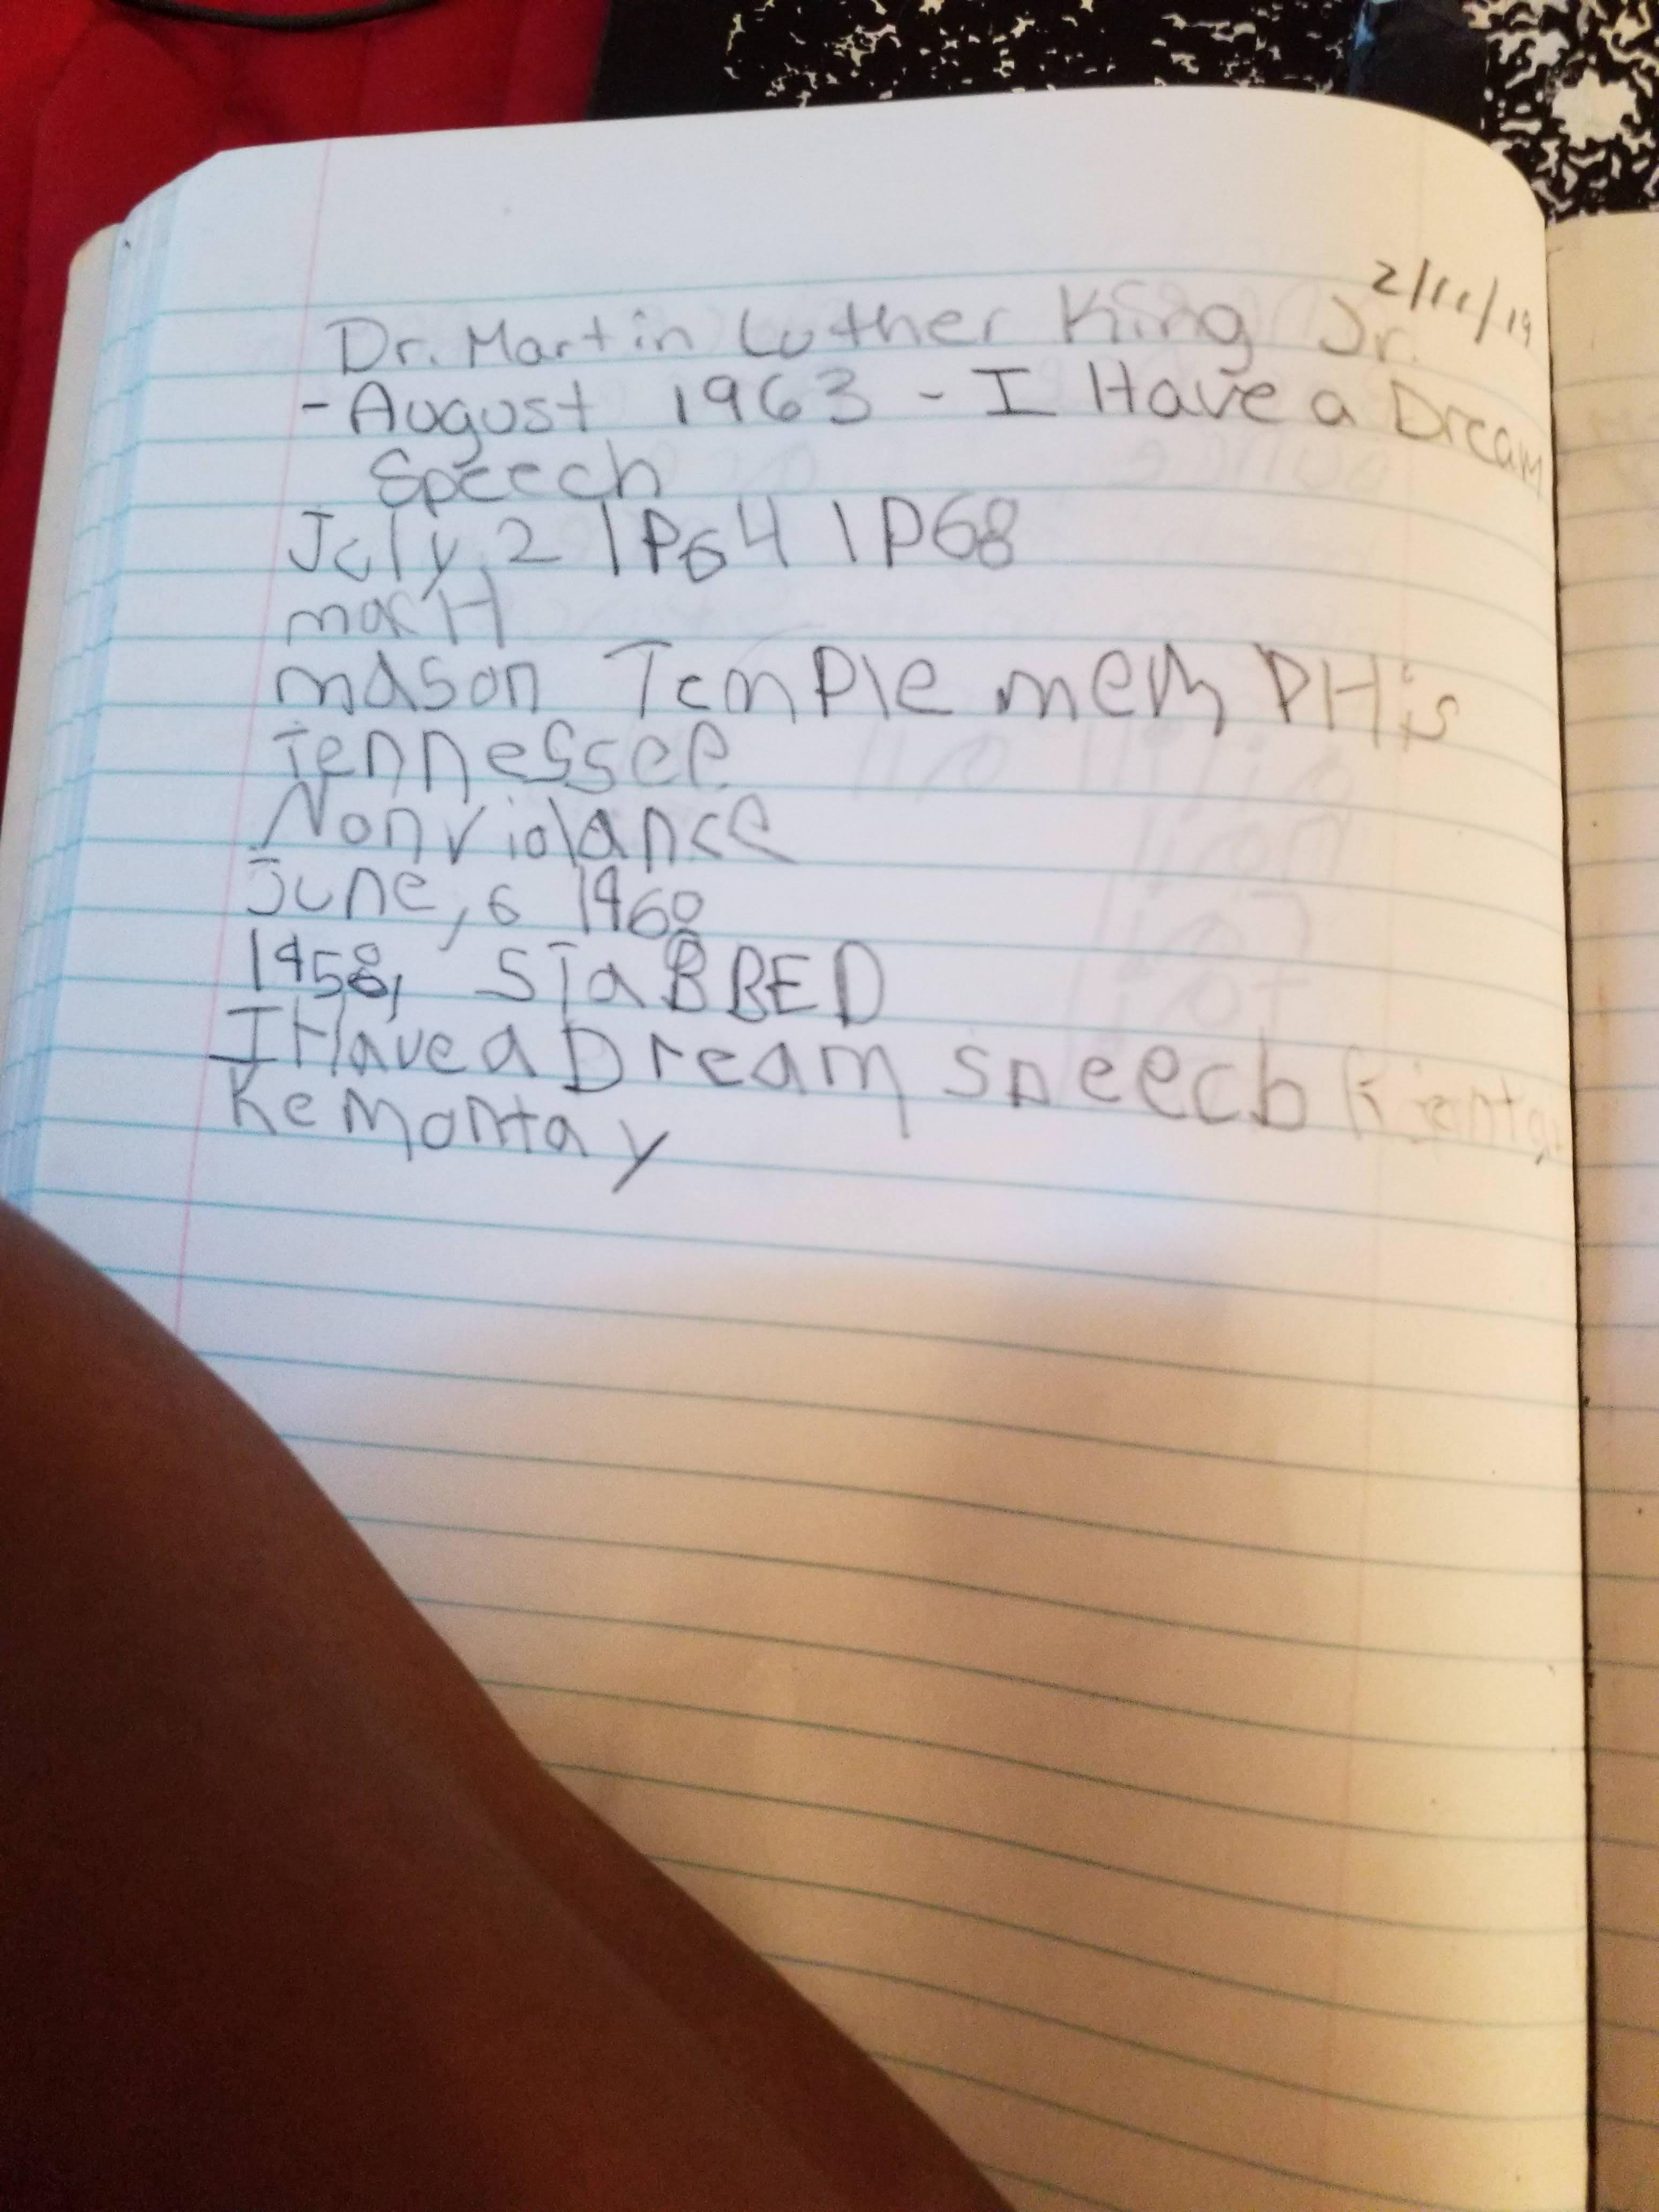 2/11/19
Dr. Martin Luther King Jr.
- August 1963 - I Have a Dream
Speech
July, 2 1P64 1P68
marH
mason Temple memPHis
Tennessee
Nonviolance
June, 6 1968
1958, STaBBED
I Have a Dream speech
Kemontay